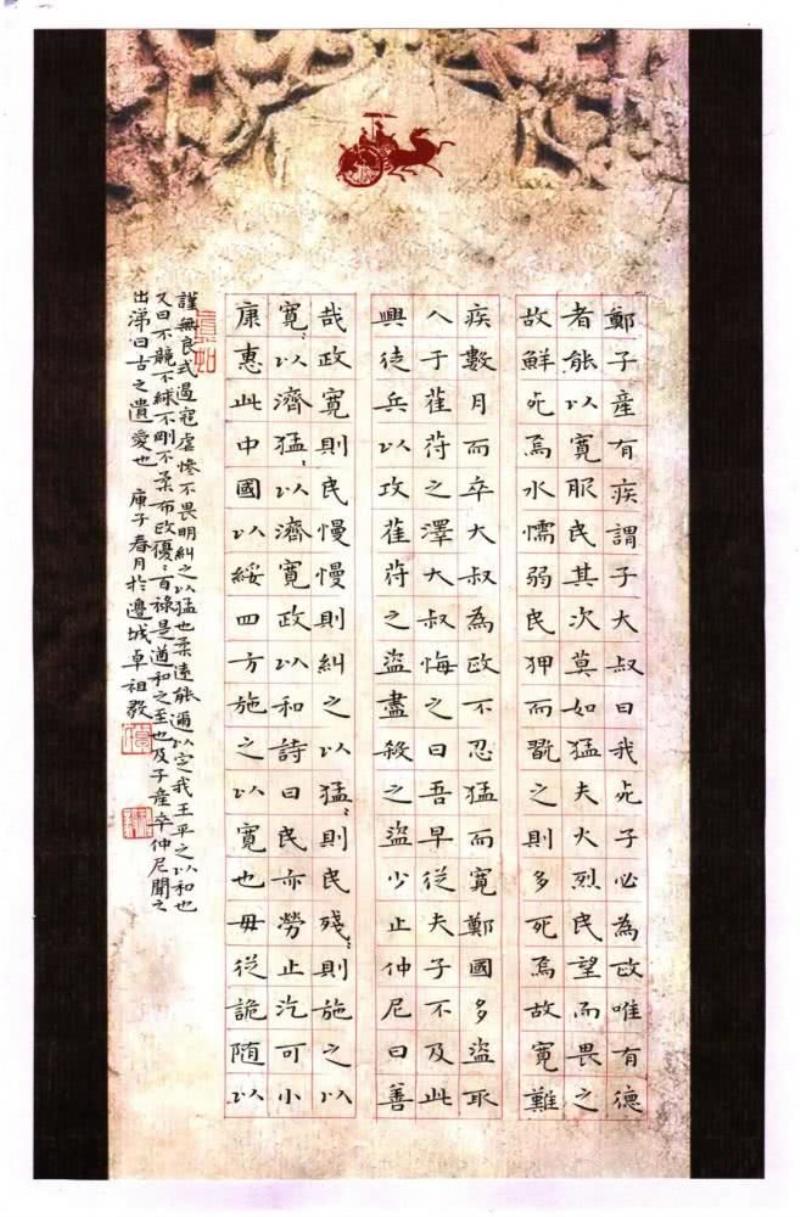 鄭子產有疾謂子大叔曰我死子必為政唯有德
者能以寬服民其次莫如猛夫火烈民望而畏之
故鮮死焉水懦弱民狎而翫之則多死焉故寬難
疾數月而卒大叔為政不忍猛而寬鄭國多盜取
人于萑苻之澤大叔悔之曰吾早從夫子不及此
興徒兵以攻萑苻之盜盡殺之盜少止仲尼曰善
哉政寬則民慢慢則糾之以猛〻則民殘〻則施之以
寬〻以濟猛〻以濟寬政以和詩曰民亦勞止汔可小
康惠此中國以綏四方施之以寬也毋從詭隨以
謹無良式遏寇虐慘不畏明糾之以猛也柔遠能邇以定我王平之以和也
又曰不競不絿不剛不柔布政優〻百祿是遒和之至也及子產卒仲尼聞之
出涕曰古之遺愛也 庚子春月於邊城卓祖毅